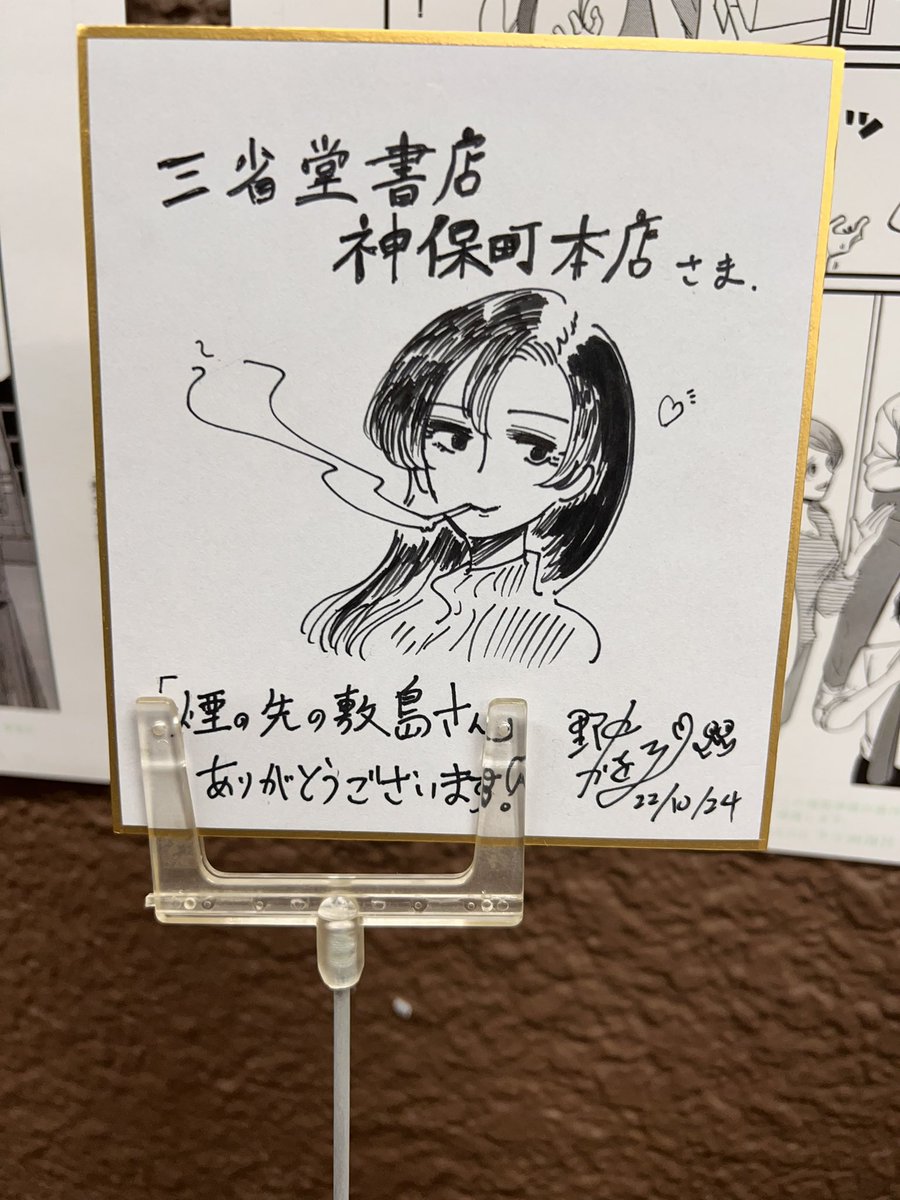 三省堂書店
神保町本店さま.
「煙の先の敷島さん」
ありがとうございます!
22/10/24
ッ